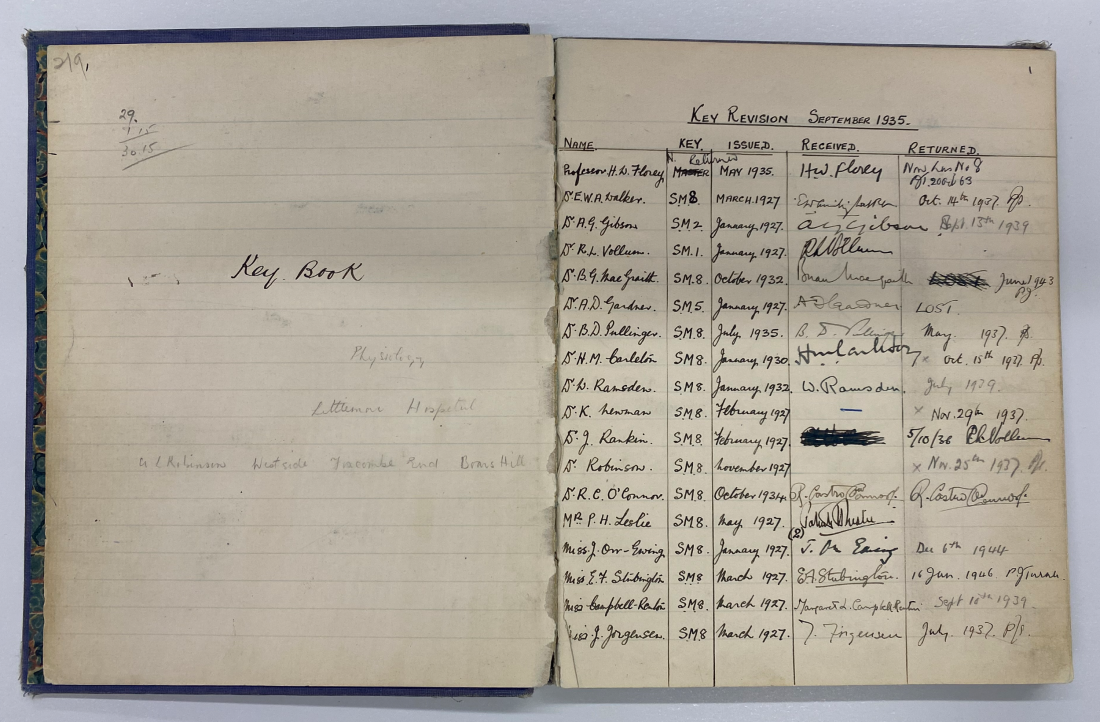 219.
29.
1 15
30.15
Key Book
Physiology
Littlemore Hospital
Robinson Westside Foxcombe End Boars Hill
1
KEY REVISION SEPTEMBER 1935.
NAME. KEY. ISSUED. RECEIVED. RETURNED.
Returned
Professor H.W. Florey MASTER MAY 1935. H.W. Florey Now has No 8
Dr E.W.A. Walker. SM8 MARCH 1927 Oct. 14th 1937.
Dr A.G. Gibson SM2 January 1927. A G Gibson Sept. 13th 1939
Dr R.L. Vollum. SM.1. January 1927. R L Vollum
Dr B.G. MacGraith SM.8. October 1932. Brian Macgraith LOST June 1943
Dr A.D. Gardner. SM5 January 1927. A D Gardner LOST.
Dr B.D. Pullinger. SM8. July 1935. B. D. Pullinger May 1937.
Dr H.M. Carleton SM8. January 1930. H M Carleton × Oct. 15th 1937
Dr W. Ramsden. SM8. January 1932. W. Ramsden. July 1939.
Dr K. Newman SM8. February 1927 — × Nov. 29th 1937.
Dr J. Rankin. SM8. February 1927 5/10/36 R L Vollum
Dr Robinson. SM8 November 1927 × Nov. 25th 1937.
Dr R.C. O'Connor. SM8. October 1934. R. Castro O'Connor R. Castro O'Connor
Mr P.H. Leslie SM8. May 1927.
(2)
Miss J. Orr-Ewing SM8. January 1927. J. Orr Ewing Dec 6th 1944
Miss E.F. Stubington SM8 March 1927. E.A. Stubington. 16 Jan. 1946 P J Turner
Miss Campbell-Renton SM8 March 1927. Margaret L. Campbell Renton Sept 10th 1939.
Miss J. Jorgensen SM8 March 1927. J. Jorgensen July 1937.